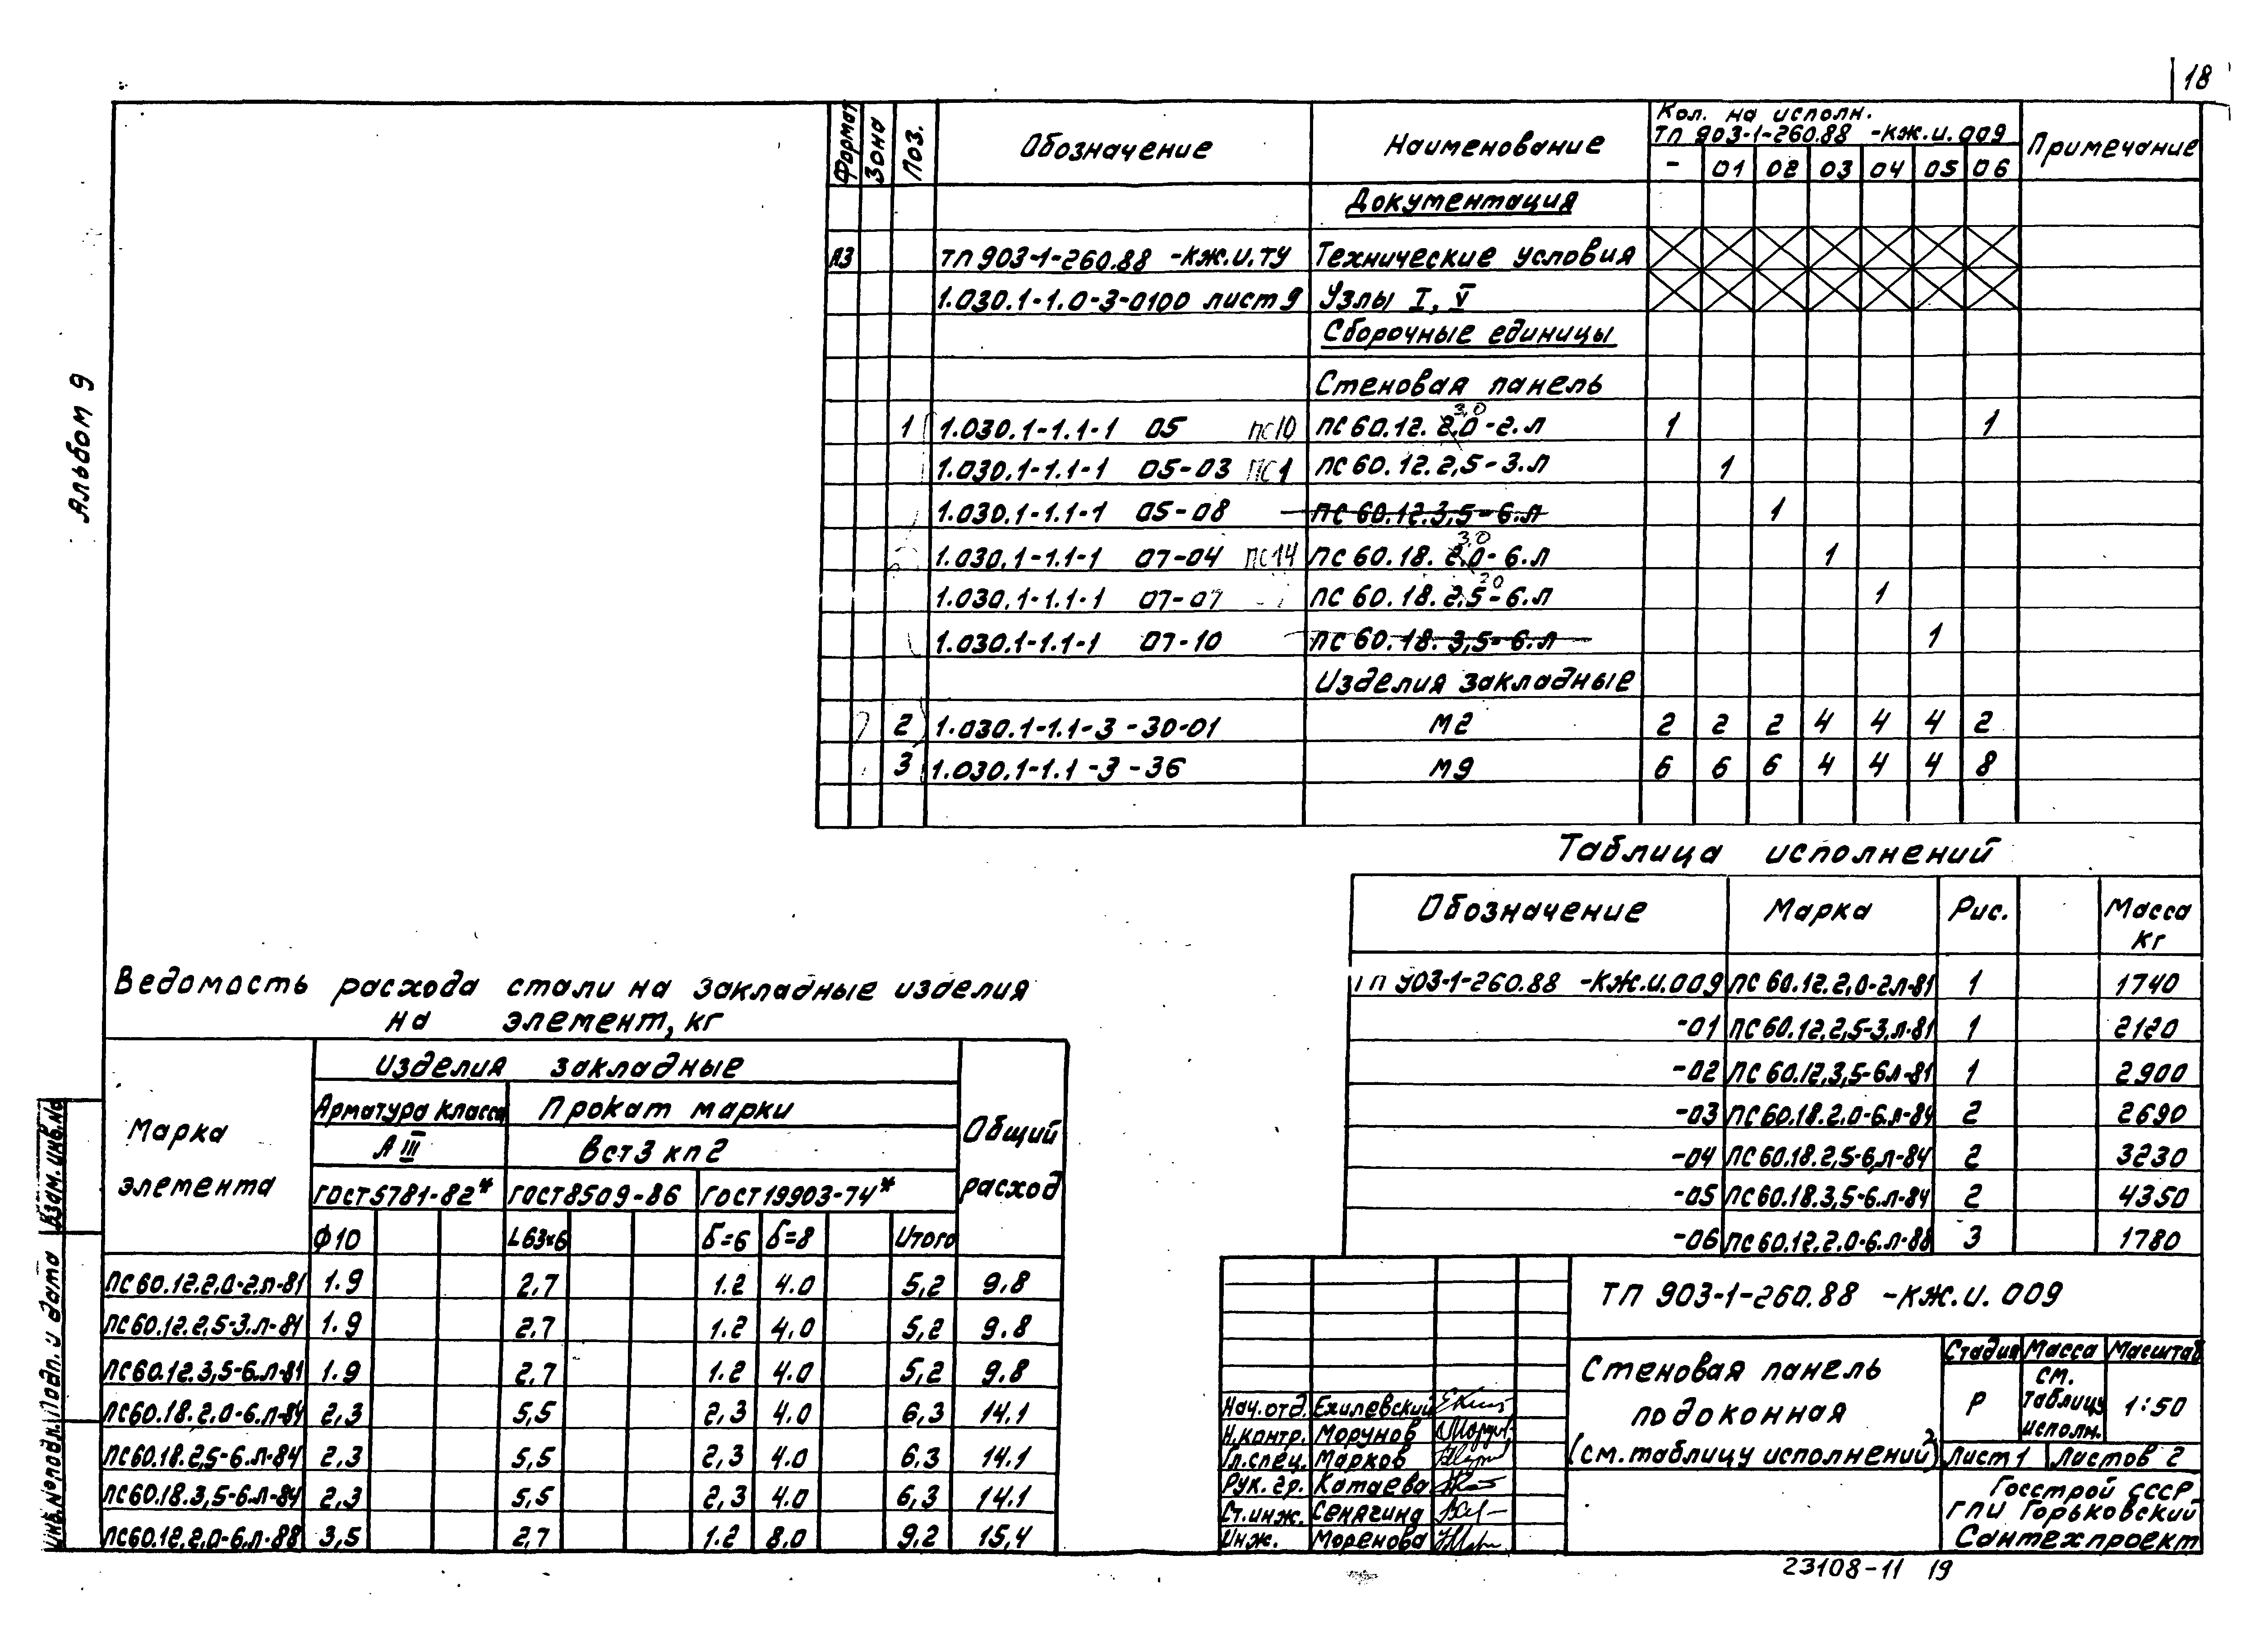 18
Альбом 9
Формат Зона Поз. Обозначение Наименование Кол. на исполн. Примечание
ТП 903-1-260.88 -КЖ.И.009
- 01 02 03 04 05 06
Документация
А3 ТП 903-1-260.88 -КЖ.И.ТУ Технические условия
1.030.1-1.0-3-0100 лист 9 Узлы I, V
Сборочные единицы
Стеновая панель
1 1.030.1-1.1-1 05 ПС10 ПС 60.12. 2,0 3,0 -2.Л 1 1
1.030.1-1.1-1 05-03 ПС1 ПС 60.12.2,5-3.Л 1
1.030.1-1.1-1 05-08 ПС 60.12.3,5-6.Л 1
1.030.1-1.1-1 07-04 ПС14 ПС 60.18. 2,0 3,0 -6.Л 1
1.030.1-1.1-1 07-07 ПС 60.18.2,5 20 -6.Л 1
1.030.1-1.1-1 07-10 ПС 60.18.3,5-6.Л 1
Изделия закладные
2 1.030.1-1.1-3-30-01 М2 2 2 2 4 4 4 2
3 1.030.1-1.1-3-36 М9 6 6 6 4 4 4 8
Таблица исполнений
Обозначение Марка Рис. Масса кг
ТП 903-1-260.88 -КЖ.И.009 ПС 60.12.2,0-2Л-81 1 1740
-01 ПС 60.12.2,5-3.Л-81 1 2120
-02 ПС 60.12.3,5-6Л-81 1 2900
-03 ПС 60.18.2.0-6.Л-84 2 2690
-04 ПС 60.18.2,5-6.Л-84 2 3230
-05 ПС 60.18.3,5-6.Л-84 2 4350
-06 ПС 60.12.2.0-6.Л-88 3 1780
Ведомость расхода стали на закладные изделия
на элемент, кг
Марка элемента Изделия закладные Общий расход
Арматура класса Прокат марки
А III Вст3 кп2
ГОСТ 5781-82* ГОСТ 8509-86 ГОСТ 19903-74*
Ф10 L63×6 δ=6 δ=8 Итого
ПС60.12.2.0-2.Л-81 1.9 2,7 1.2 4.0 5,2 9.8
ПС60.12.2,5-3.Л-81 1.9 2,7 1.2 4.0 5,2 9.8
ПС60.12.3,5-6.Л-81 1.9 2,7 1.2 4.0 5,2 9.8
ПС60.18.2.0-6.Л-84 2,3 5,5 2,3 4.0 6,3 14.1
ПС60.18.2,5-6.Л-84 2,3 5,5 2,3 4.0 6,3 14.1
ПС60.18.3,5-6.Л-84 2,3 5,5 2,3 4.0 6,3 14.1
ПС60.12.2.0-6.Л-88 3,5 2,7 1.2 8.0 9.2 15,4
ТП 903-1-260.88 -КЖ.И. 009
Стеновая панель
подоконная
(см. таблицу исполнений)
Стадия Масса Масштаб
Р см. таблицу исполн. 1:50
Лист 1 Листов 2
Госстрой СССР
ГПИ Горьковский
Сантехпроект
Нач.отд. Ехилевский
Н.контр. Морунов
Гл.спец. Марков
Рук.гр. Катаева
Ст.инж. Сенягина
Инж. Моренова
Инв.№ подл. Подп. и дата Взам. инв.№
23108-11 19